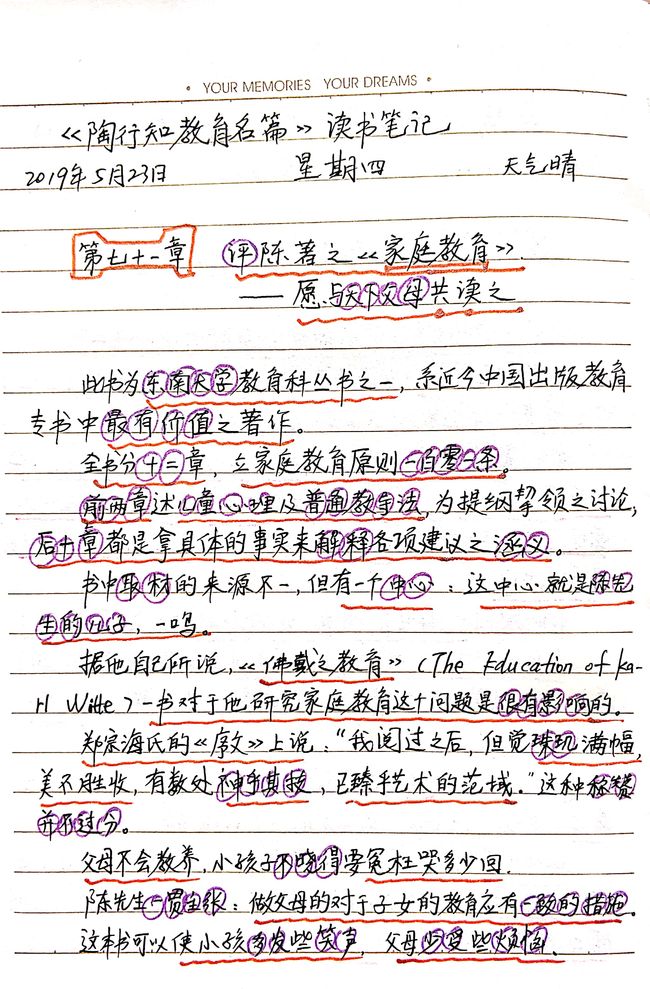 • YOUR MEMORIES YOUR DREAMS •
《陶行知教育名篇》读书笔记
2019年5月23日 星期四 天气晴
第七十一章 评陈著之《家庭教育》.
——愿与天下父母共读之
此书为东南大学教育科丛书之一,系近今中国出版教育
专书中最有价值之著作。
全书分十二章,立家庭教育原则一百零一条。
前两章述儿童心理及普通教学法,为提纲挈领之讨论,
后十章都是拿具体的事实来解释各项建议之涵义。
书中取材的来源不一,但有一个中心:这中心就是陈先
生的儿子,一鸣。
据他自己所说,《佛戴之教育》(The Education of Ka-
rl Witte)一书对于他研究家庭教育这个问题是很有影响的。
郑宗海氏的《序文》上说:“我阅过之后,但觉珠玑满幅,
美不胜收,有数处神乎其技,已臻乎艺术的范域。”这种称赞
并不过分。
父母不会教养,小孩子不晓得要冤枉哭多少回.
陈先生一贯主张:做父母的对于子女的教育应有一致的措施。
这本书可以使小孩多发些笑声,父母少受些烦恼.